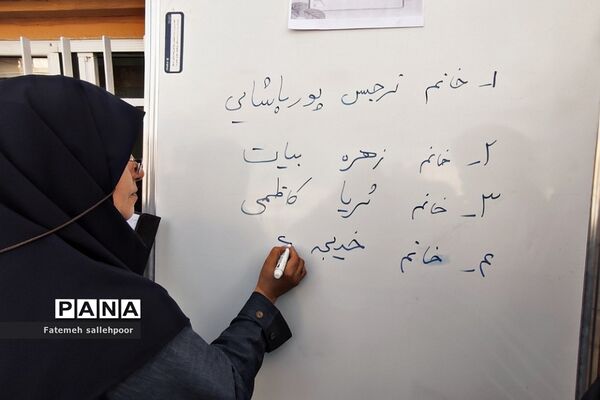 ۱ـ خانم نرجس پورپاشایی
۲ـ خانم زهره بیات
۳ـ خانم ثریا کاظمی
۴ـ خانم خدیجه
PANA
Fatemeh sallehpoor